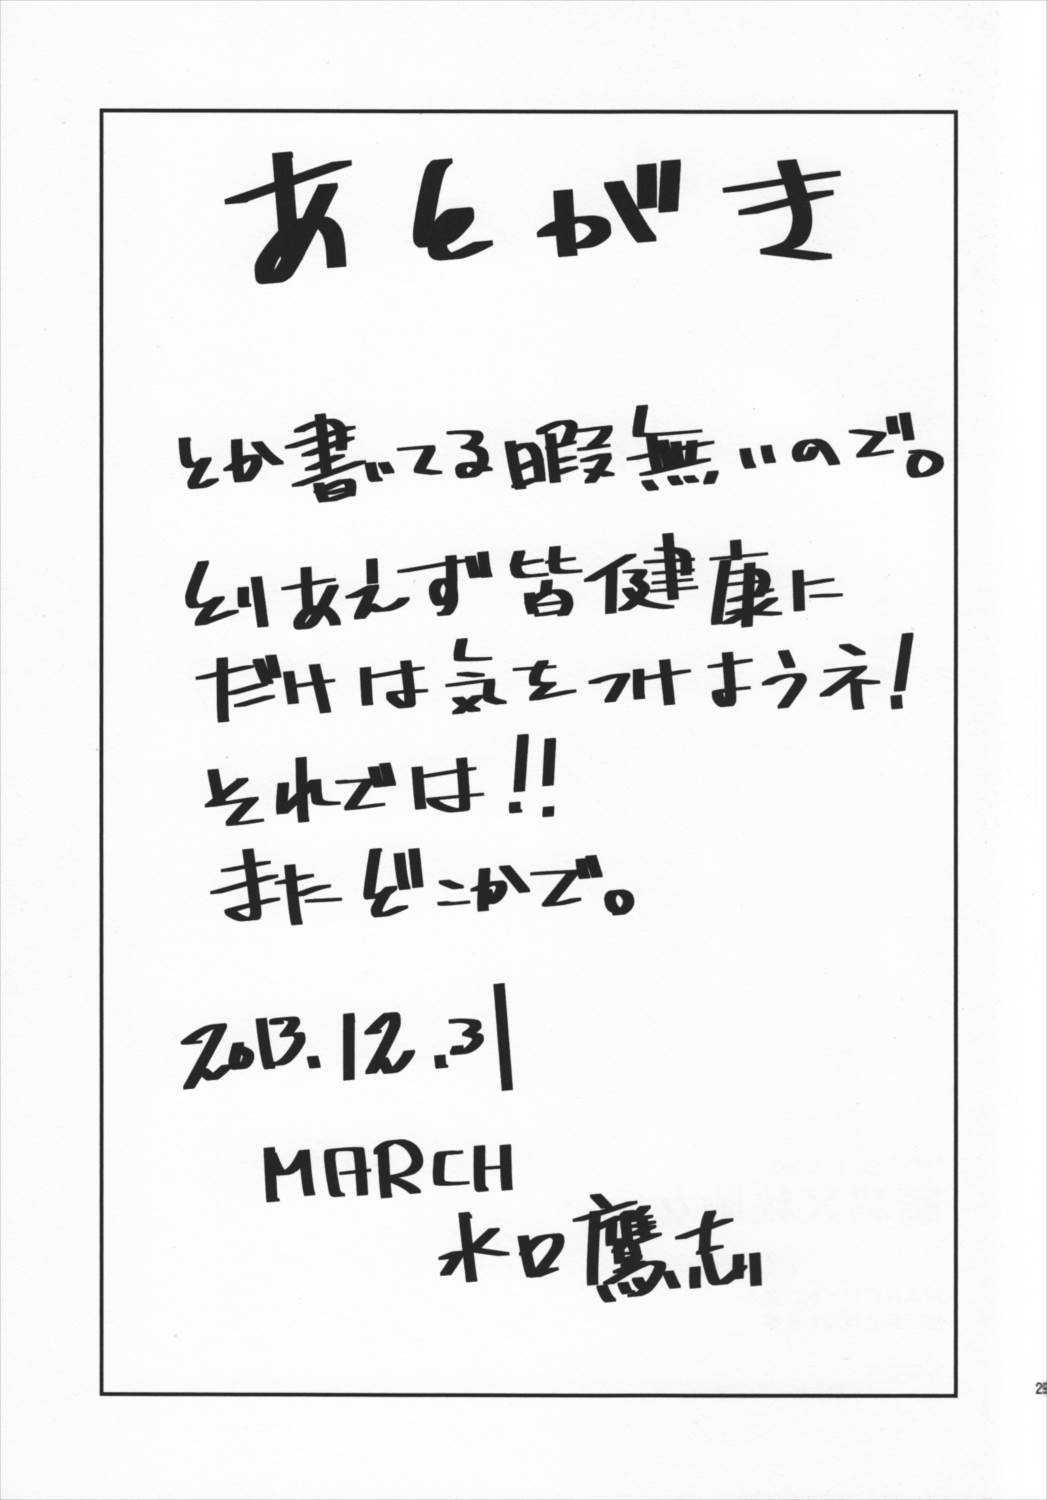 あとがき
とか書いてる暇無いので。
とりあえず皆健康に
だけは気をつけようネ!
それでは!!
またどこかで。
2013.12.31
MARCH
水口鷹志
29